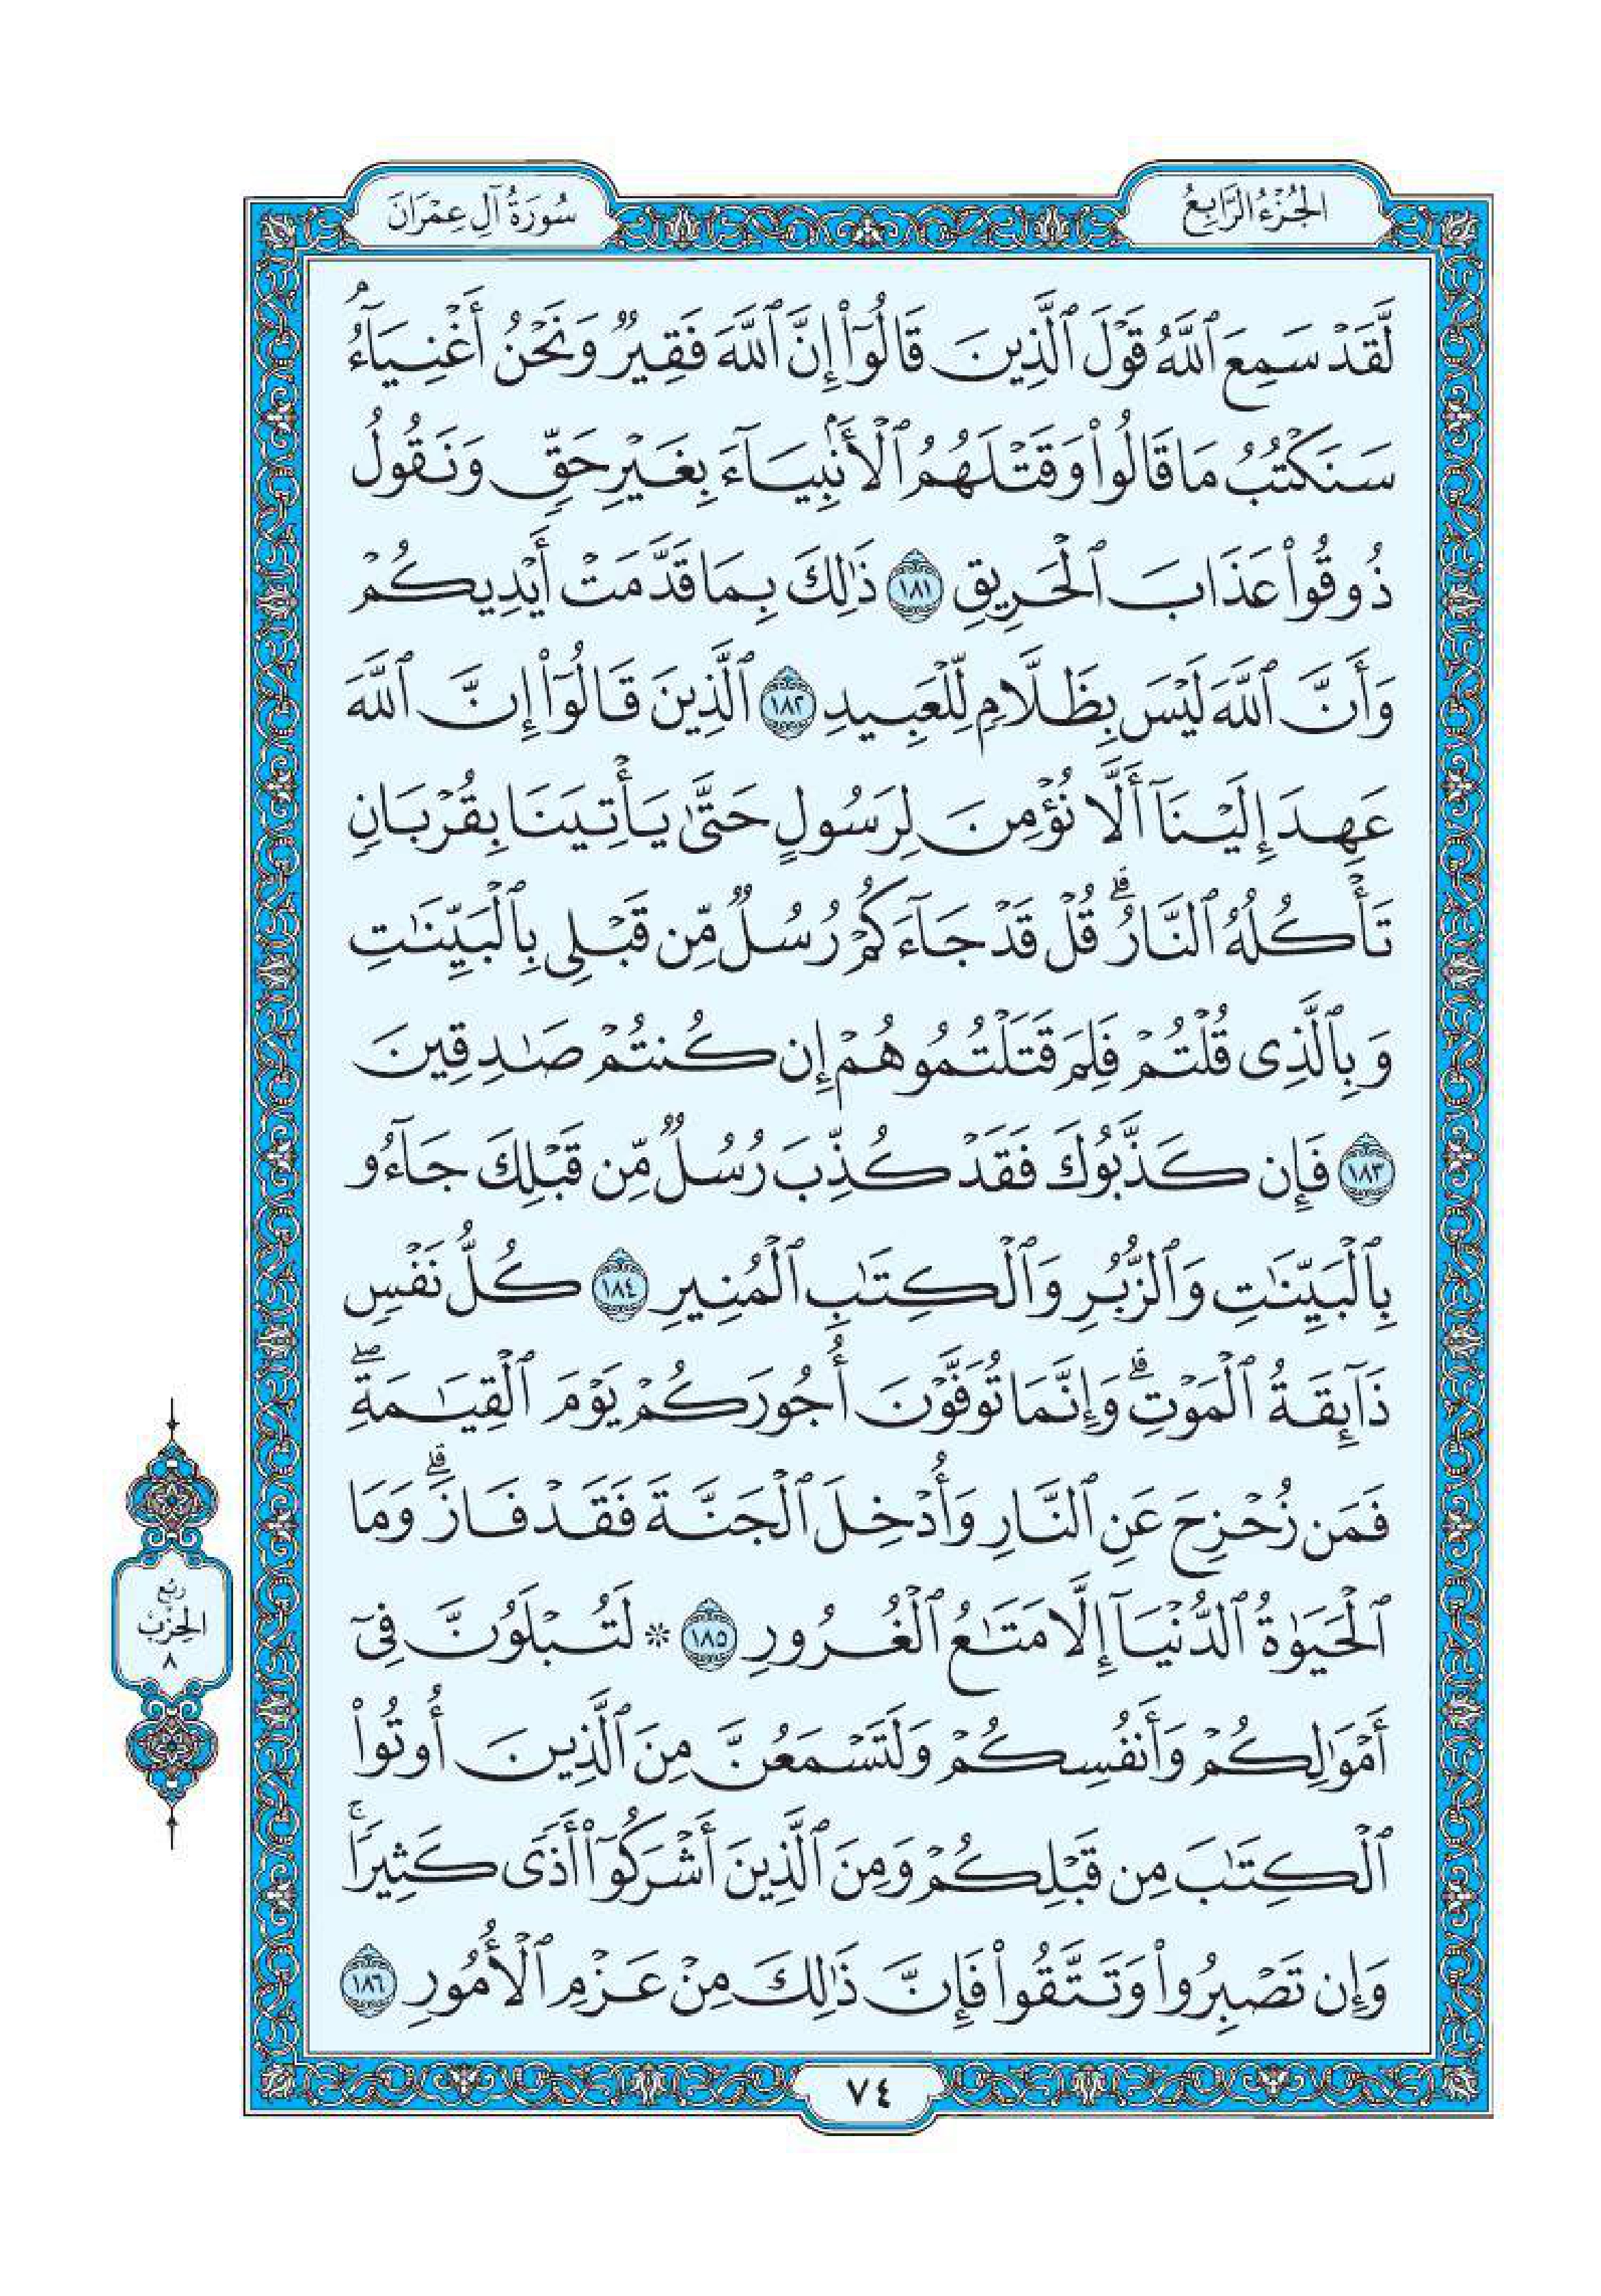 الجُزْءُ الرَّابِعُ
سُورَةُ آلِ عِمْرَانَ
لَّقَدْ سَمِعَ ٱللَّهُ قَوْلَ ٱلَّذِينَ قَالُوٓاْ إِنَّ ٱللَّهَ فَقِيرٌ وَنَحْنُ أَغْنِيَآءُۘ
سَنَكْتُبُ مَا قَالُواْ وَقَتْلَهُمُ ٱلْأَنۢبِيَآءَ بِغَيْرِ حَقٍّ وَنَقُولُ
ذُوقُواْ عَذَابَ ٱلْحَرِيقِ ١٨١ ذَٰلِكَ بِمَا قَدَّمَتْ أَيْدِيكُمْ
وَأَنَّ ٱللَّهَ لَيْسَ بِظَلَّامٍ لِّلْعَبِيدِ ١٨٢ ٱلَّذِينَ قَالُوٓاْ إِنَّ ٱللَّهَ
عَهِدَ إِلَيْنَآ أَلَّا نُؤْمِنَ لِرَسُولٍ حَتَّىٰ يَأْتِيَنَا بِقُرْبَانٍ
تَأْكُلُهُ ٱلنَّارُۗ قُلْ قَدْ جَآءَكُمْ رُسُلٌ مِّن قَبْلِى بِٱلْبَيِّنَٰتِ
وَبِٱلَّذِى قُلْتُمْ فَلِمَ قَتَلْتُمُوهُمْ إِن كُنتُمْ صَٰدِقِينَ
١٨٣ فَإِن كَذَّبُوكَ فَقَدْ كُذِّبَ رُسُلٌ مِّن قَبْلِكَ جَآءُو
بِٱلْبَيِّنَٰتِ وَٱلزُّبُرِ وَٱلْكِتَٰبِ ٱلْمُنِيرِ ١٨٤ كُلُّ نَفْسٍ
ذَآئِقَةُ ٱلْمَوْتِۗ وَإِنَّمَا تُوَفَّوْنَ أُجُورَكُمْ يَوْمَ ٱلْقِيَٰمَةِۖ
فَمَن زُحْزِحَ عَنِ ٱلنَّارِ وَأُدْخِلَ ٱلْجَنَّةَ فَقَدْ فَازَۗ وَمَا
ٱلْحَيَوٰةُ ٱلدُّنْيَآ إِلَّا مَتَٰعُ ٱلْغُرُورِ ١٨٥ * لَتُبْلَوُنَّ فِىٓ
أَمْوَٰلِكُمْ وَأَنفُسِكُمْ وَلَتَسْمَعُنَّ مِنَ ٱلَّذِينَ أُوتُواْ
ٱلْكِتَٰبَ مِن قَبْلِكُمْ وَمِنَ ٱلَّذِينَ أَشْرَكُوٓاْ أَذًى كَثِيرًاۚ
وَإِن تَصْبِرُواْ وَتَتَّقُواْ فَإِنَّ ذَٰلِكَ مِنْ عَزْمِ ٱلْأُمُورِ ١٨٦
رُبْع
الحِزْب
٨
٧٤